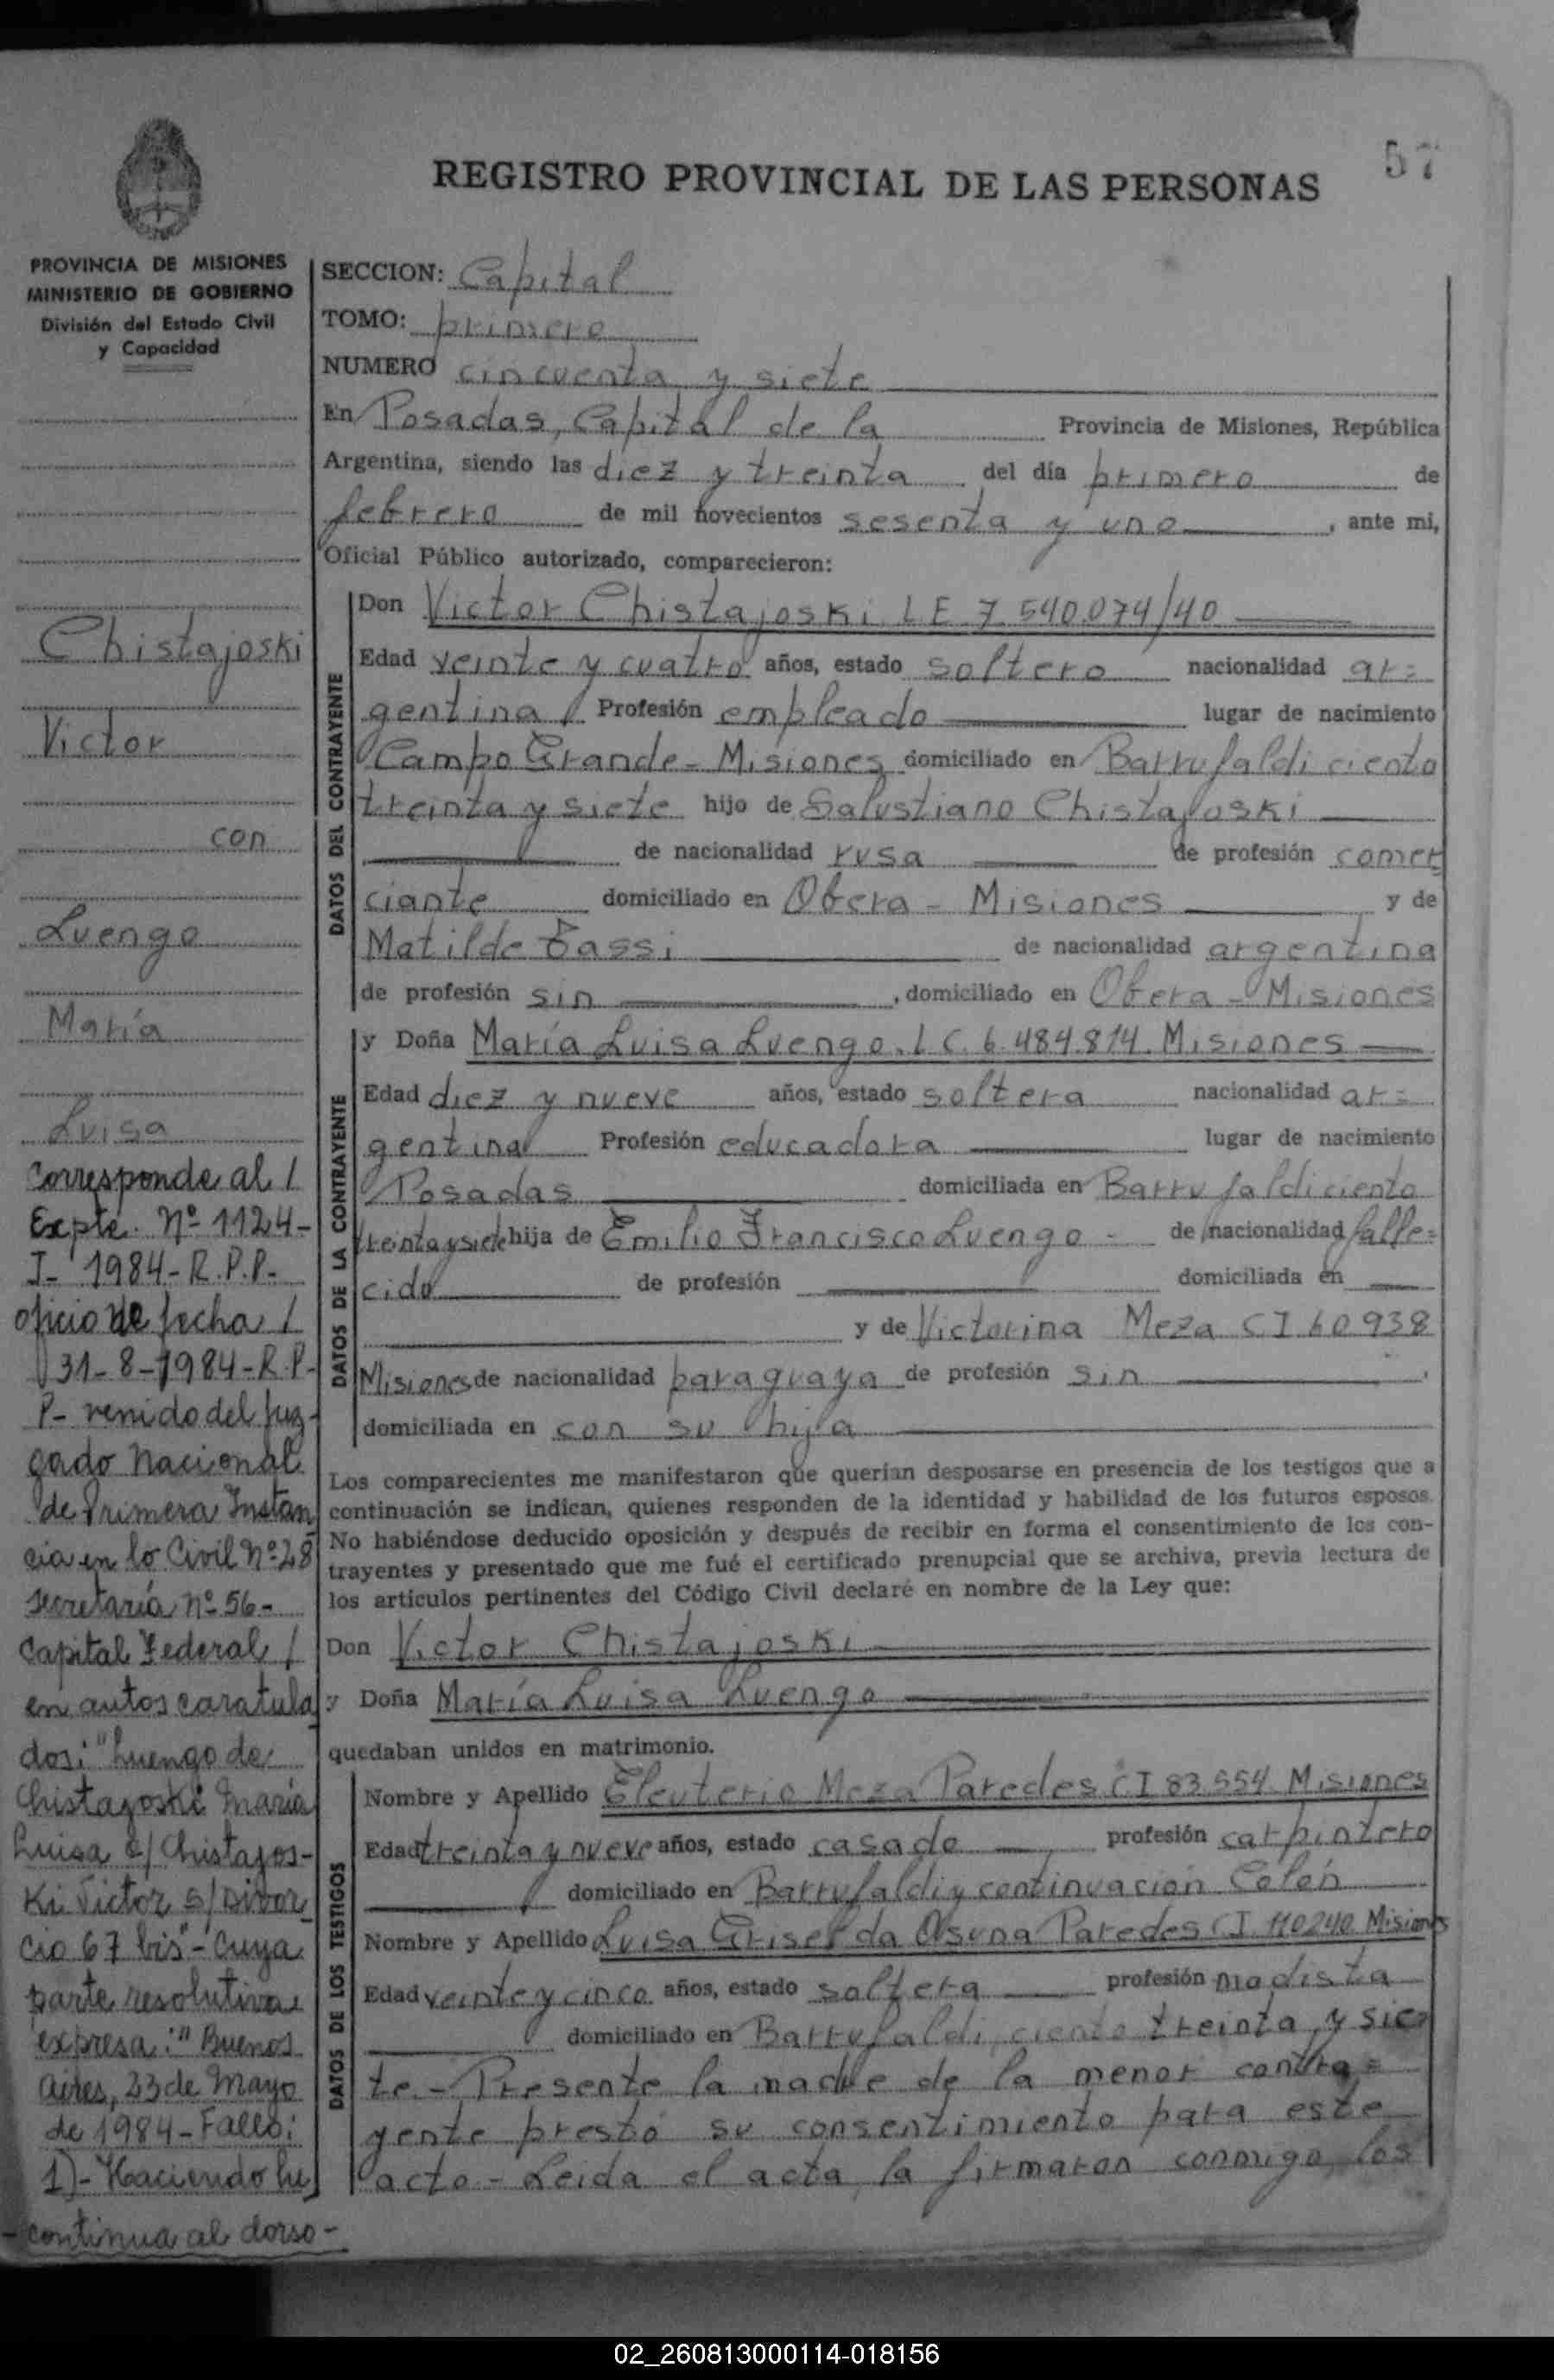 57
REGISTRO PROVINCIAL DE LAS PERSONAS
PROVINCIA DE MISIONES
MINISTERIO DE GOBIERNO
División del Estado Civil
y Capacidad
Chistajoski
Victor
con
Luengo
María
Luisa
Corresponde al /
Expte. Nº 1124-
J- 1984- R.P.P.-
oficio de fecha /
31-8-1984-R.P.
P- venido del Juz-
gado Nacional
de Primera Instan
cia en lo Civil Nº 28
secretaría Nº 56-
Capital Federal /
en autos caratula
dos: "Luengo de
Chistajoski María
Luisa c/ Chistajos-
Ki Victor s/ Divor
cio 67 bis"- Cuya
parte resolutiva
expresa: " Buenos
Aires, 23 de Mayo
de 1984- Fallo:
1)- Haciendo lu
-continua al dorso-
SECCION: Capital
TOMO: primero
NUMERO cincuenta y siete
En Posadas, Capital de la Provincia de Misiones, República
Argentina, siendo las diez y treinta del día primero de
febrero de mil novecientos sesenta y uno, ante mi,
Oficial Público autorizado, comparecieron:
DATOS DEL CONTRAYENTE
Don Victor Chistajoski L E 7 540.074/40
Edad veinte y cuatro años, estado soltero nacionalidad ar=
gentina Profesión empleado lugar de nacimiento
Campo Grande- Misiones domiciliado en Barrufaldi ciento
treinta y siete hijo de Salustiano Chistajoski
de nacionalidad rusa de profesión comer
ciante domiciliado en Obera - Misiones y de
Matilde Bassi de nacionalidad argentina
de profesión sin, domiciliado en Obera - Misiones
DATOS DE LA CONTRAYENTE
y Doña María Luisa Luengo. L C. 6.484.814. Misiones
Edad diez y nueve años, estado soltera nacionalidad ar=
gentina Profesión educadora lugar de nacimiento
Posadas domiciliada en Barrufaldi ciento
treinta y siete hija de Emilio Francisco Luengo - de nacionalidad falle=
cido de profesión domiciliada en
y de Victorina Meza C I 60938
Misiones de nacionalidad paraguaya de profesión sin,
domiciliada en con su hija
Los comparecientes me manifestaron que querían desposarse en presencia de los testigos que a
continuación se indican, quienes responden de la identidad y habilidad de los futuros esposos.
No habiéndose deducido oposición y después de recibir en forma el consentimiento de los con-
trayentes y presentado que me fué el certificado prenupcial que se archiva, previa lectura de
los artículos pertinentes del Código Civil declaré en nombre de la Ley que:
Don Victor Chistajoski
y Doña María Luisa Luengo
quedaban unidos en matrimonio.
DATOS DE LOS TESTIGOS
Nombre y Apellido Eleuterio Meza Paredes C I 83.554 Misiones
Edad treinta y nueve años, estado casado profesión carpintero
domiciliado en Barrufaldi y continuación Colón
Nombre y Apellido Luisa Griselda Osuna Paredes C I. 110240 Misiones
Edad veinte y cinco años, estado soltera profesión modista
domiciliado en Barrufaldi, ciento treinta y sie
te.- Presente la madre de la menor contra=
yente prestó su consentimiento para este
acto - Leida el acta, la firmaron conmigo, los
02_260813000114-018156